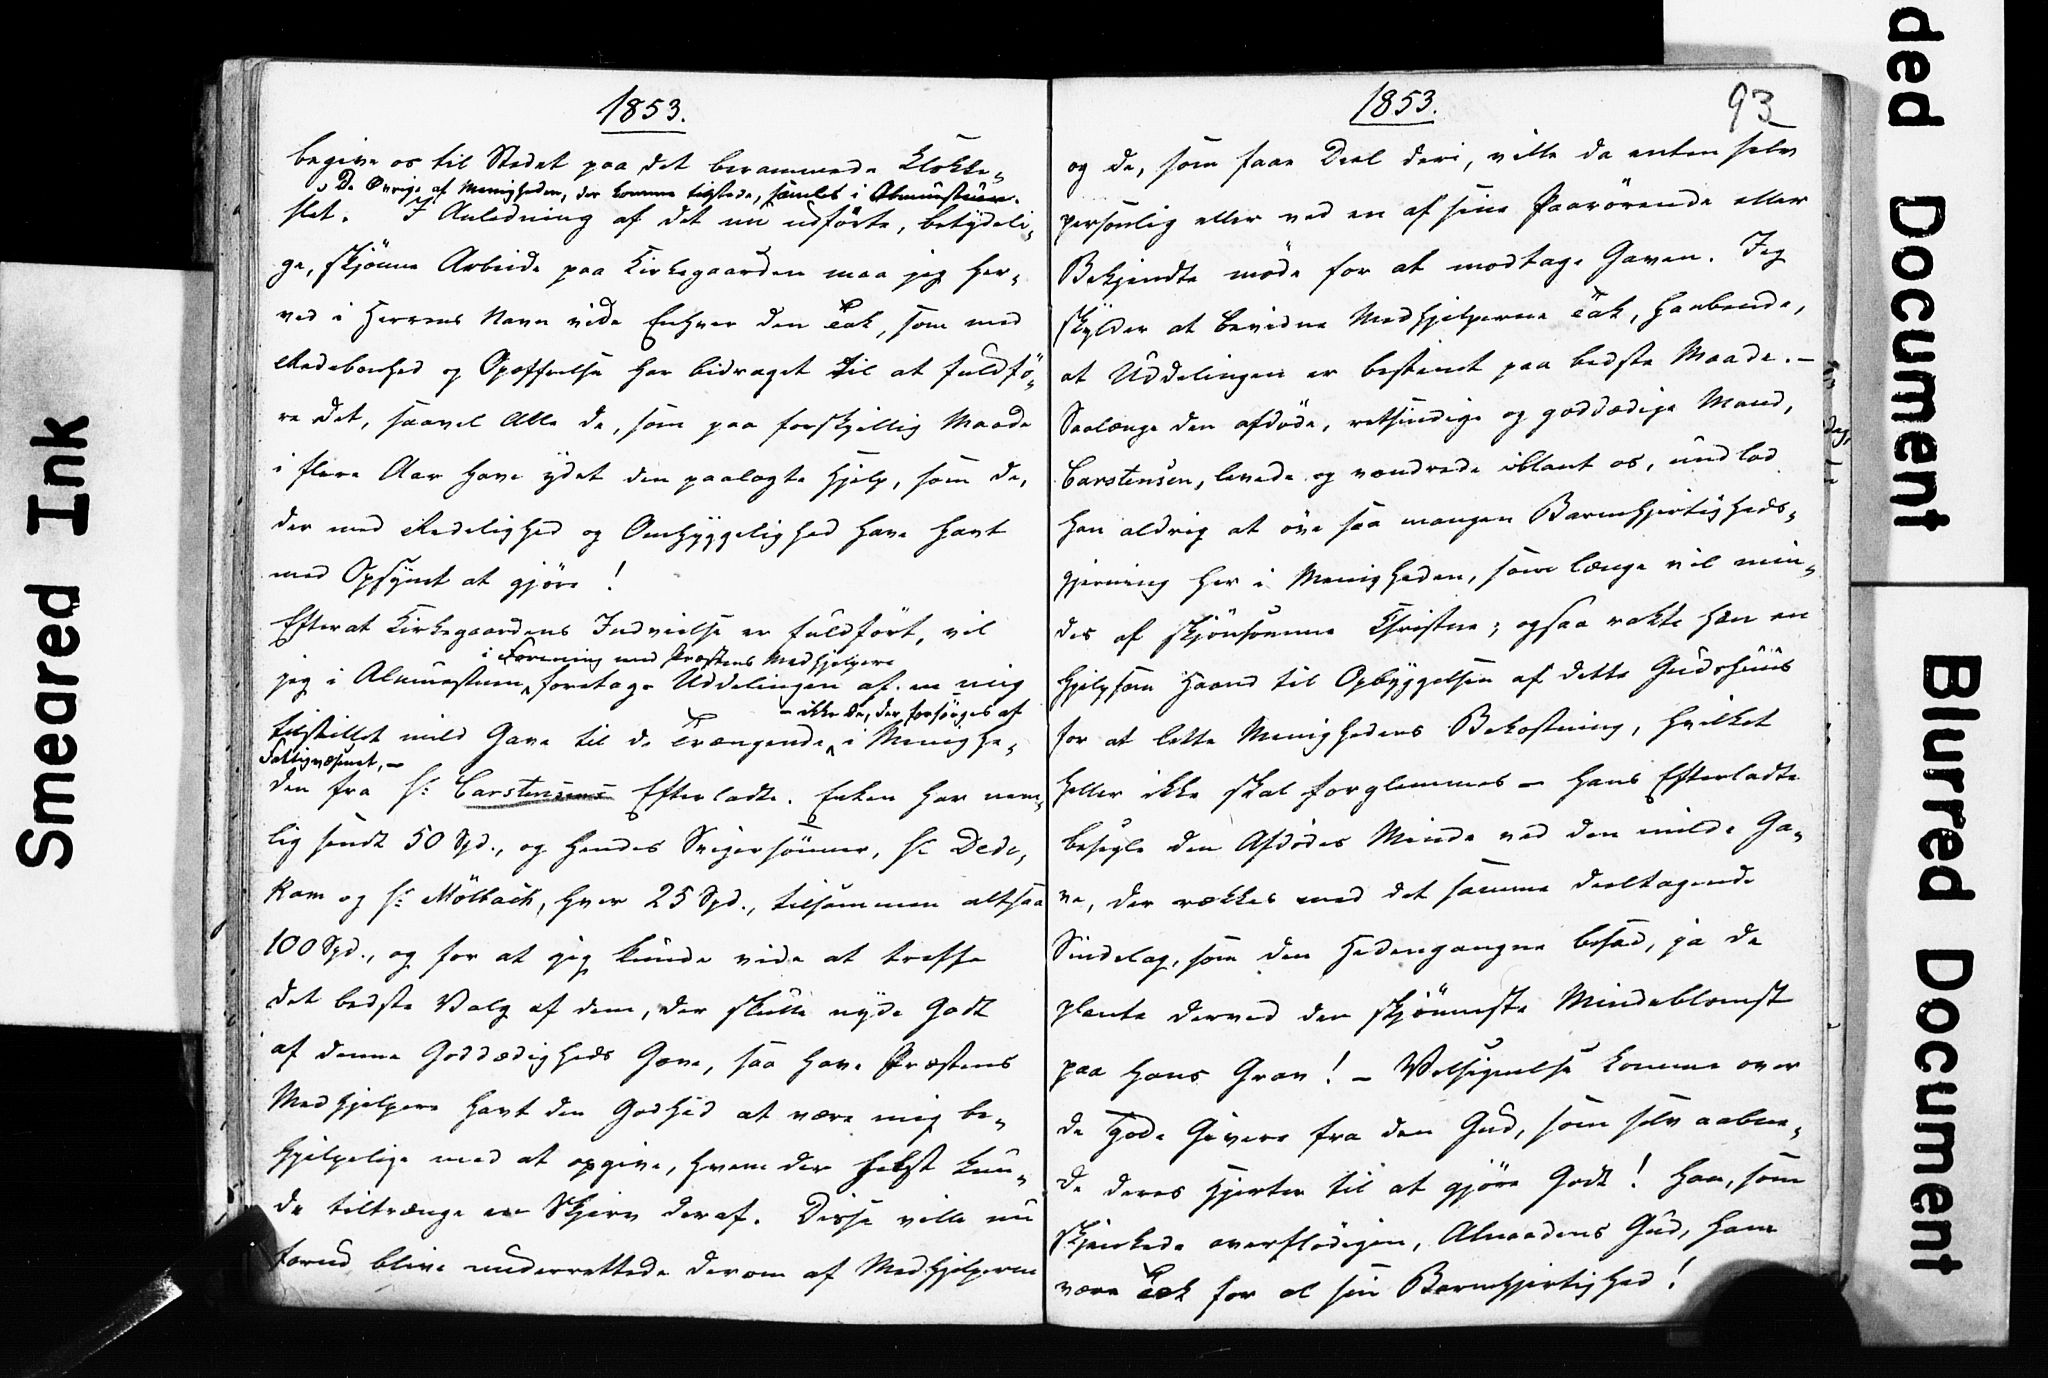 1853.
begive os til Stedet paa det berammede Klokke-
De Øvrige af Menigheden, der komme tilstede, samles i Almuestuen.
slet. I Anledning af det nu udförte, betydeli-
ge, skjönne Arbeide paa Kirkegaarden maa jeg her-
ved i Herrens Navn vide Enhver den Tak, som med
Redebonhed og Opoffrelse har bidraget til at fuldfö-
re det, saavel Alle de, som paa forskjellig Maade
i flere Aar have ydet den paalagte Hjelp, som de,
der med Redelighed og Omhyggelighed have havt
med Opsynet at gjöre!
Efterat Kirkegaardens Indvielse er fuldfört, vil
i Forening med Præstens Medhjelpere
jeg i Almuestuen foretage Uddelingen af en mig
- ikke de, der forsörges af
tilstillet mild Gave til de Trængende i Menighe-
Fattigvæsenet, -
den fra Hr Carstensens Efterladte. Enken har nem-
lig sendt 50 Spd., og hendes Svigersönner, Hr Dede-
kam og Hr Mölbach, hver 25 Spd., tilsammen altsaa
100 Spd., og for at jeg kunde vide at treffe
det bedste Valg af dem, der skulle nyde Godt
af denne Goddædigheds Gave, saa have Præstens
Medhjelpere havt den Godhed at være mig be-
hjelpelige med at opgive, hvem der helst kun-
de tiltrænge en Skjerv deraf. Disse ville nu
forud blive underrettede derom af Medhjelperne
1853.
93
og de, som faae Deel deri, ville da enten selv
personlig eller ved en af sine Paarörende eller
Bekjendte möde for at modtage Gaven. Jeg
skylder at bevidne Medhjelperne Tak, haabende,
at Uddelingen er bestemt paa bedste Maade. -
Saalænge den afdöde, retsindige og goddædige Mand,
Carstensen, levede og vandrede iblant os, undlod
han aldrig at öve saa mangen Barmhjertigheds-
gjerning her i Menigheden, som længe vil min-
des af skjönsomme Christne; ogsaa rakte han en
hjelpsom Haand til Opbyggelsen af dette Gudshuus
for at lette Menighedens Bekostning, hvilket
heller ikke skal forglemmes - Hans Efterladte
besegle den Afdödes Minde ved den milde Ga-
ve, der rækkes med det samme deeltagende
Sindelag, som den Hedengangne besad, ja de
plante derved den skjönneste Mindeblomst
paa Hans Grav! - Velsignelse komme over
de gode Givere fra den Gud, som selv aabne-
de deres Hjerter til at gjöre Godt! Han, som
skjenkede overflödigen, Alnaadens Gud, ham
være Tak for al sin Barmhjertighed!
Smeared Ink
ded Document
Blurred Document